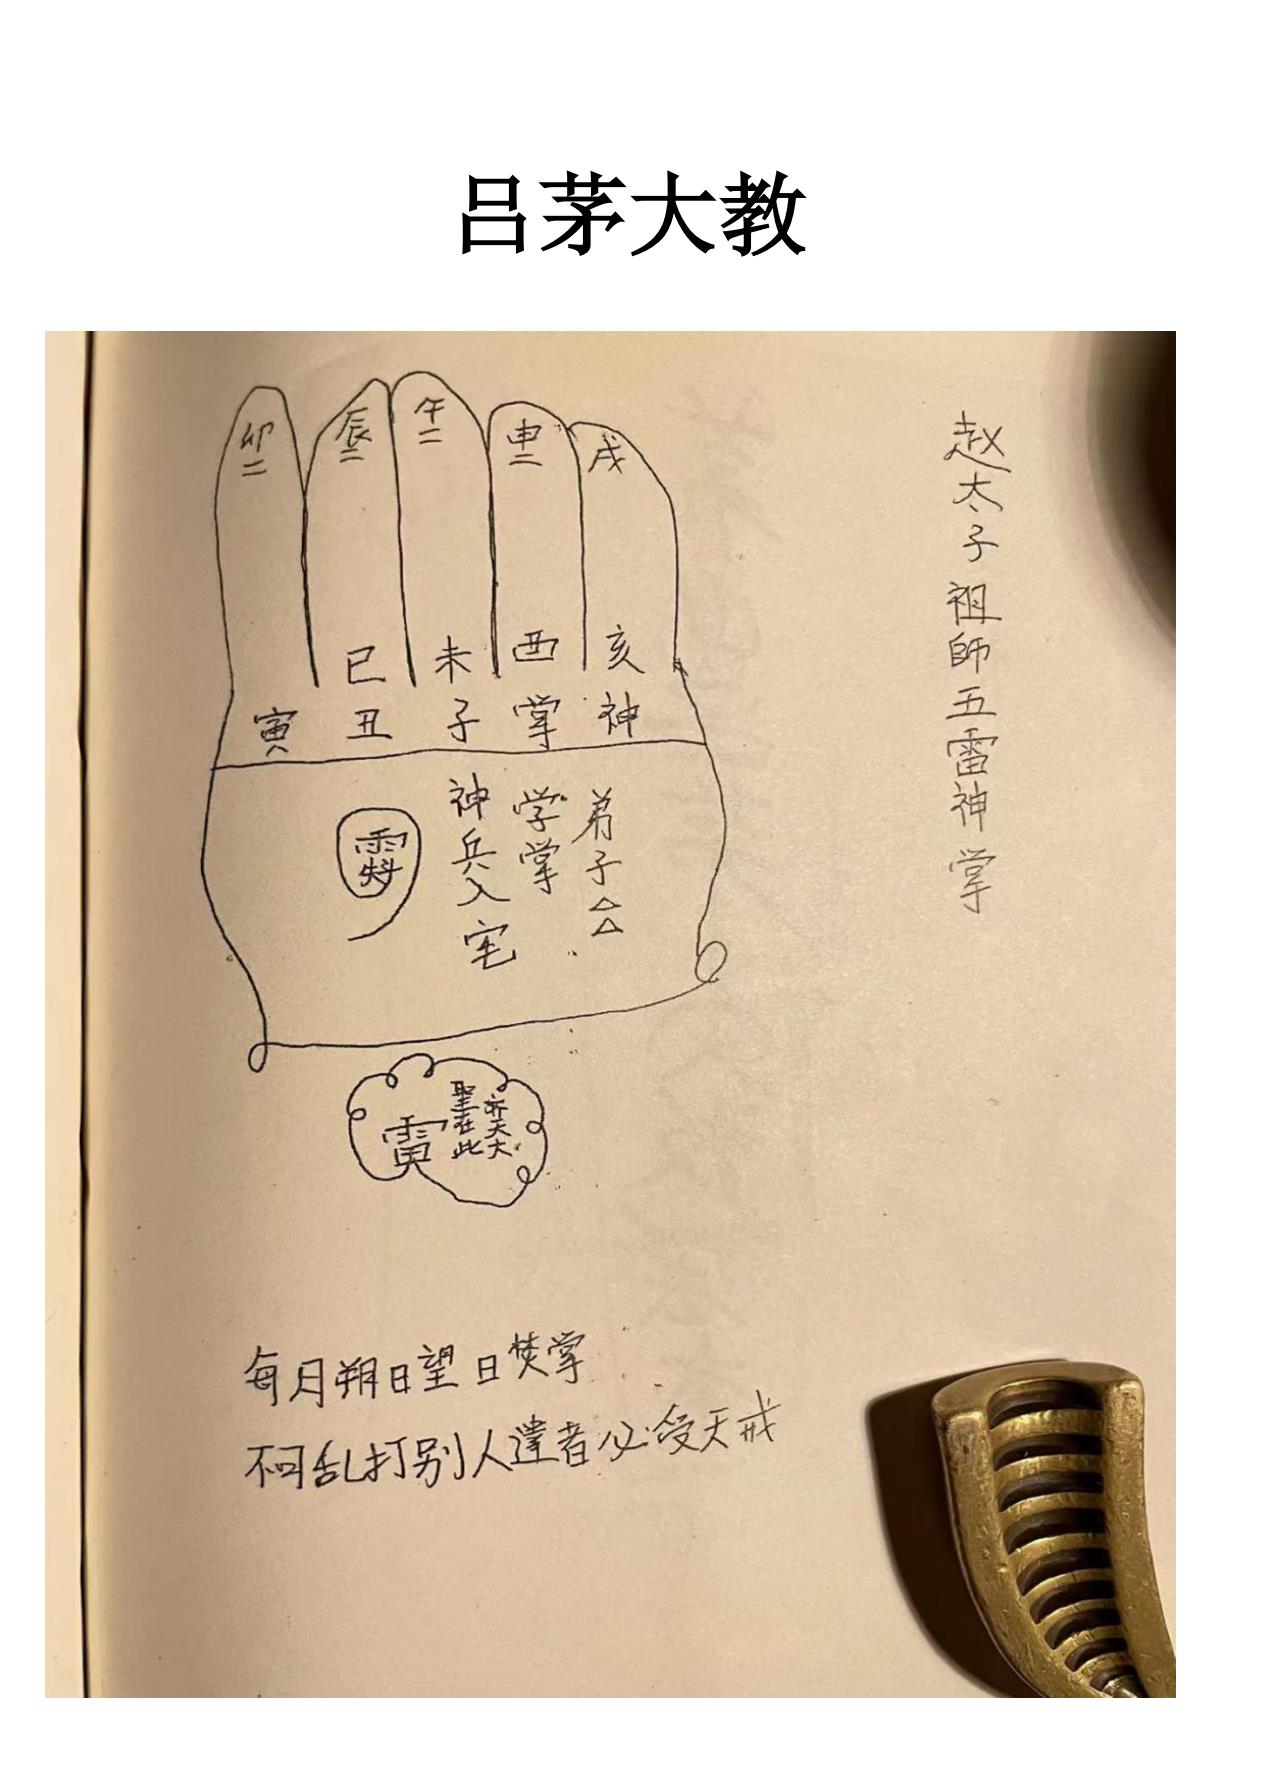 吕茅大教
赵太子祖師五雷神掌
卯二
辰二
午二
申二
戌
巳
未
酉
亥
寅
丑
子
掌
神
弟子△△
学掌
神兵入宅
齐天大
聖在此
每月朔日望日焚掌
不可乱打别人違者必受天戒